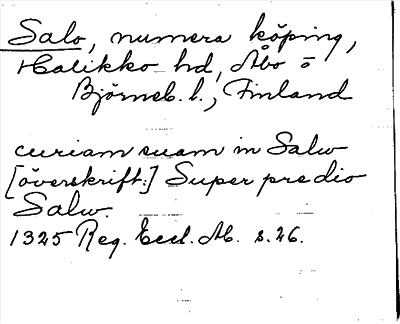 Salo, numera köping,
Halikko hd, Åbo o
Björneb. l., Finland
curiam suam in Salw
[överskrift:] Super predio
Salw.
1325 Reg. Eccl. Ab. s. 26.